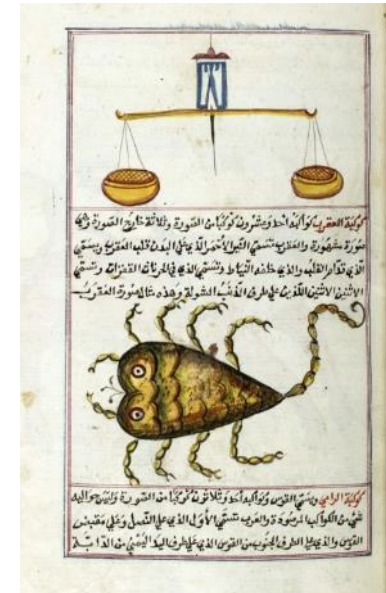 كوكبة العقرب كواكبه أحد وعشرون كوكبا من الصورة وثلاثة خارج الصورة وهي
صورة مشهورة والعرب تسمي النير الأحمر الذي على البدن قلب العقرب ويسمي
الذي قدام القلب والذي خلفه النياط وتسمي الذي في الخرزات الفقرات وتسمي
الاثنين الاثنين اللذين على طرف الذنب الشولة وهذه مثال صورة العقرب
كوكبة الرامي ويسمي القوس وكواكبه أحد وثلاثون كوكبا من الصورة وليس حواليه
شئ من الكواكب المرصودة والعرب تسمي الأول الذي على النصل والذي على مقبض
القوس والذي على الطرف الجنوبي من القوس الذي على طرف اليد اليمنى من الدابة